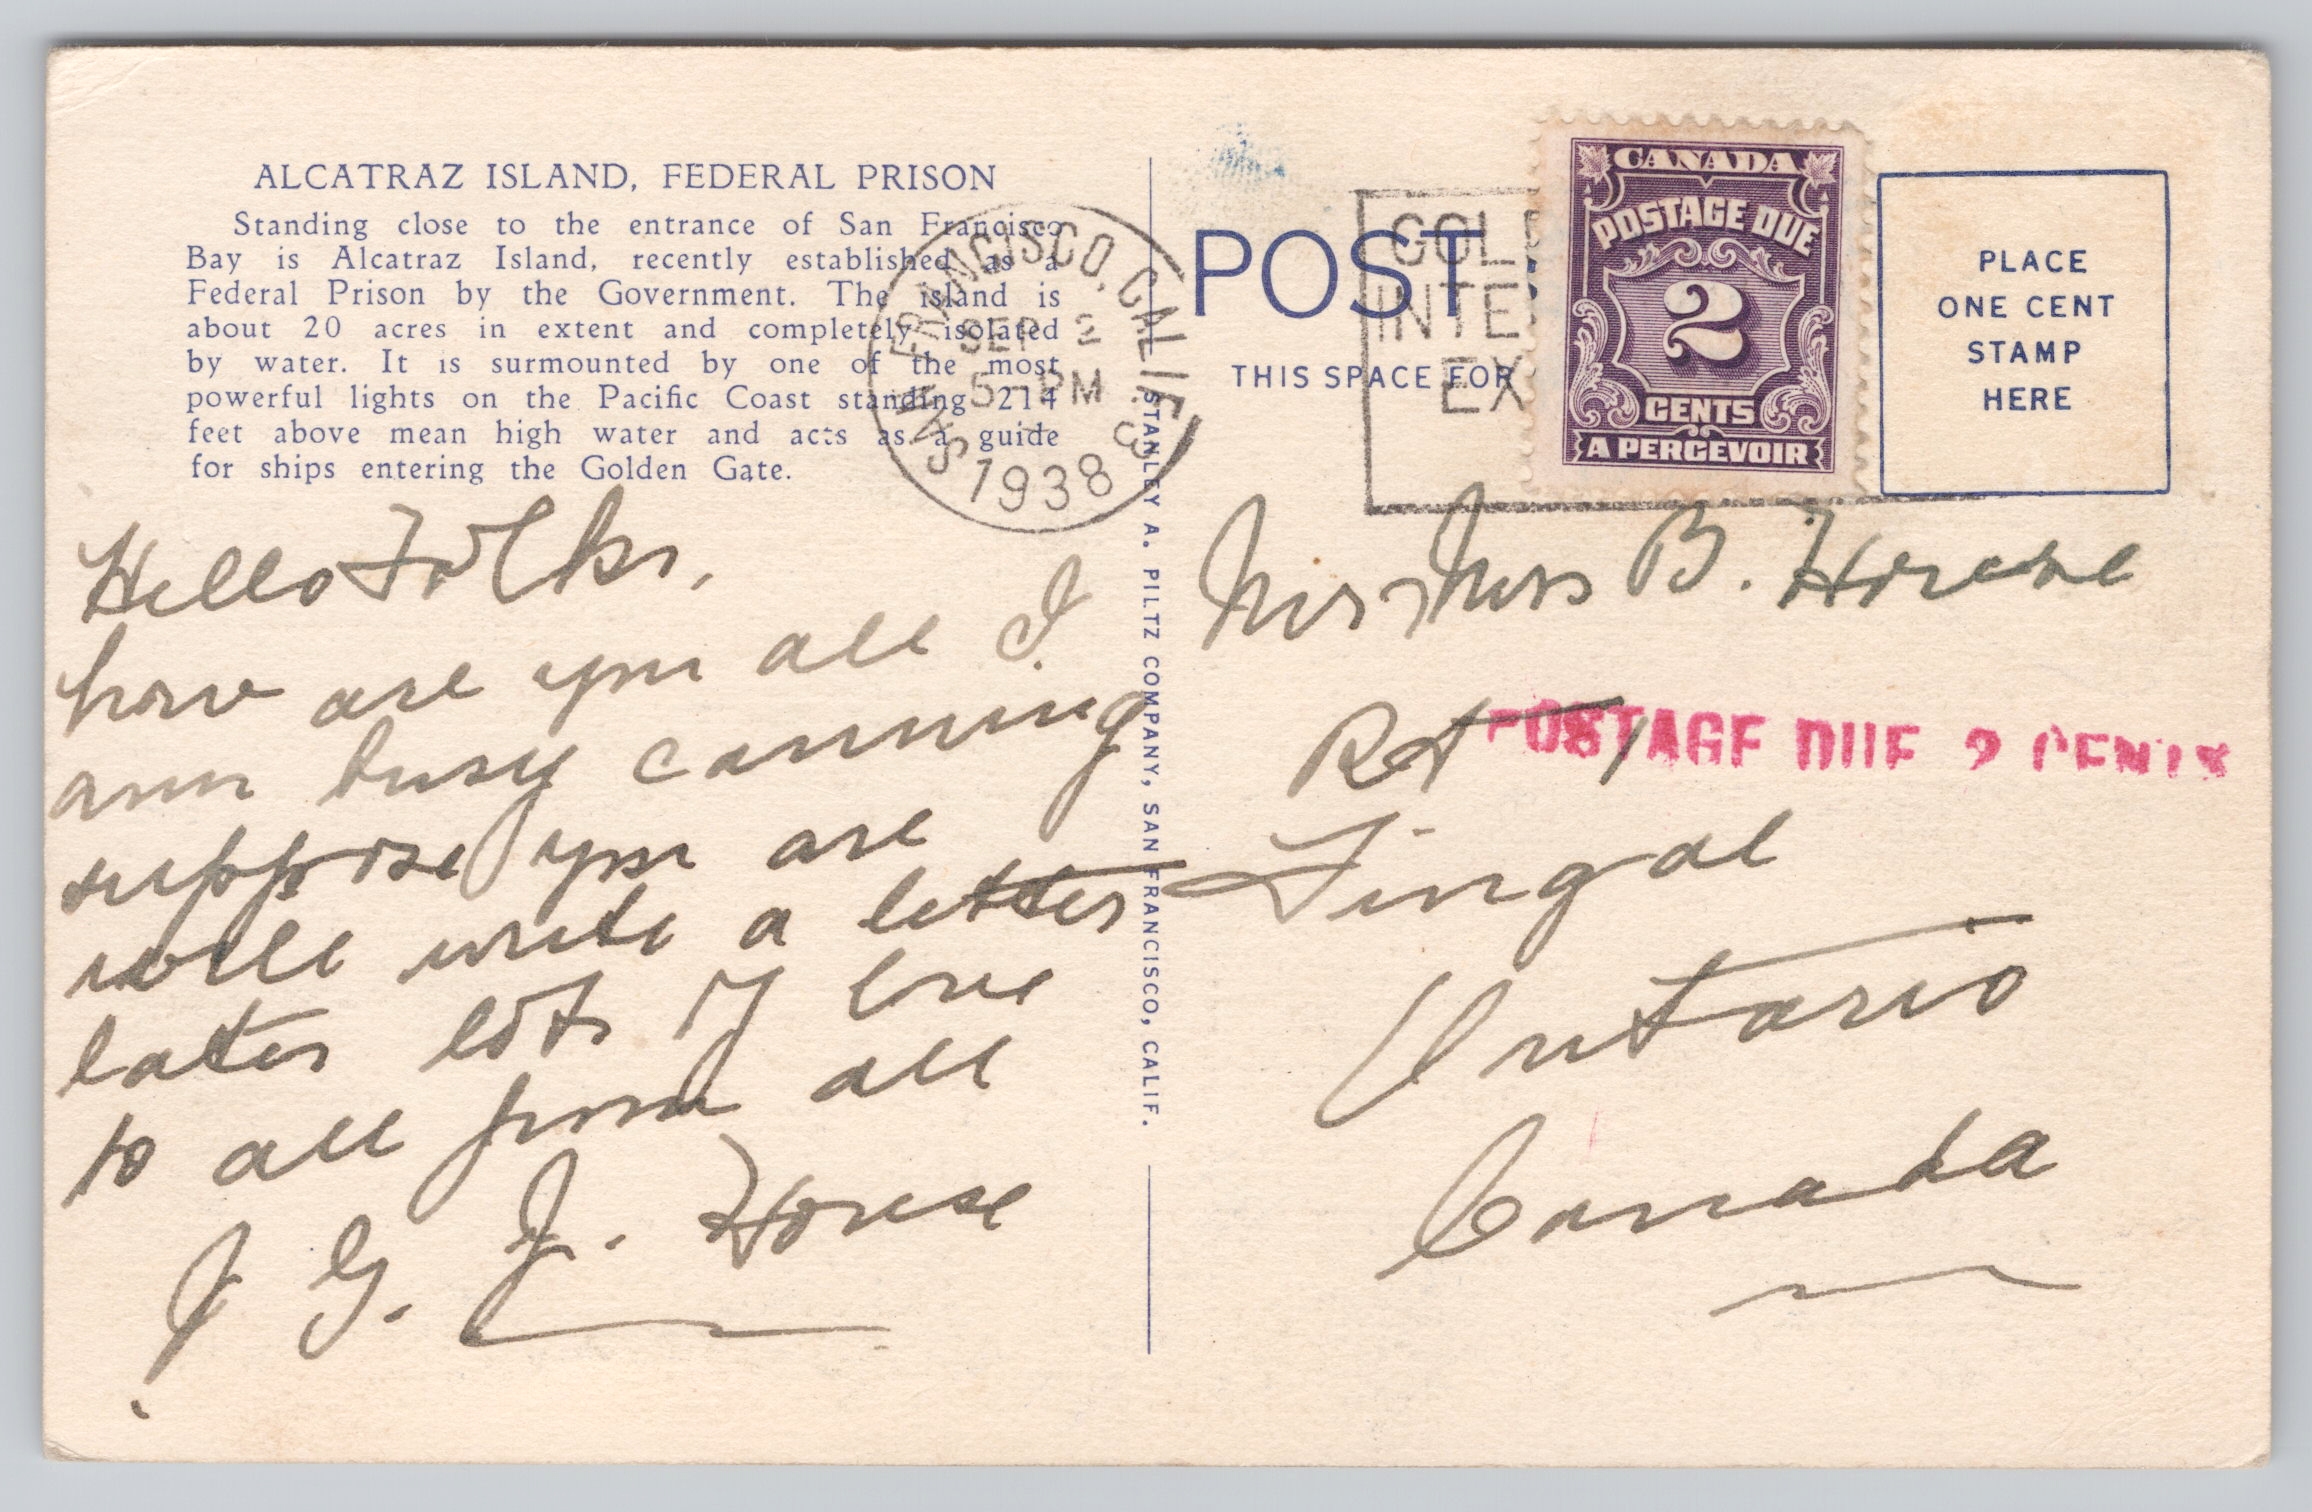 ALCATRAZ ISLAND, FEDERAL PRISON
Standing close to the entrance of San Francisco
Bay is Alcatraz Island, recently established as a
Federal Prison by the Government. The island is
about 20 acres in extent and completely isolated
by water. It is surmounted by one of the most
powerful lights on the Pacific Coast standing 214
feet above mean high water and acts as a guide
for ships entering the Golden Gate.
SAN FRANCISCO, CALIF.
SEP 2
5 - PM
1938
Hello Folks,
how are you all I
am busy canning
suppose you are
will write a letter
later lots of love
to all from all
J G. J. House
STANLEY A. PILTZ COMPANY, SAN FRANCISCO, CALIF.
POST
THIS SPACE FOR
GOL
INTE
EX
CANADA
POSTAGE DUE
2
CENTS
A PERCEVOIR
PLACE
ONE CENT
STAMP
HERE
Mr Mrs B. House
Rt 1
POSTAGE DUE 2 CENTS
Fingal
Ontario
Canada